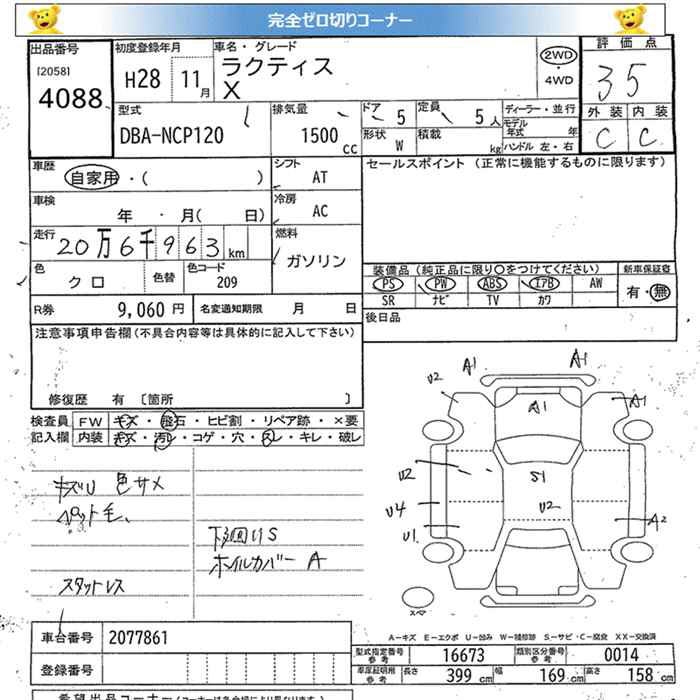 完全ゼロ切りコーナー
出品番号 初度登録年月 車名・グレード 評価点
[2058] 4088 H28 11月 ラクティス X 2WD・4WD 35
外装 内装
C C
型式 排気量 ドア 5 定員 5人 ディーラー・並行
DBA-NCP120 1500cc 形状 W 積載 kg モデル年式 年
ハンドル 左・右
車歴 シフト セールスポイント (正常に機能するものに限ります)
自家用・( ) AT
車検 冷房
年・月( 日) AC
走行 燃料
20万6千963km ガソリン
色 クロ 色替 色コード 209
装備品 (純正品に限り○をつけてください) 新車保証書
PS PW ABS エアB AW 有・無
SR ナビ TV カワ
R券 9,060円 名変通知期限 月 日
後日品
注意事項申告欄(不具合内容等は具体的に記入して下さい)
修復歴 有 〔箇所 〕
検査員 FW キズ・飛石・ヒビ割・リペア跡・×要
記入欄 内装 キズ・汚レ・コゲ・穴・スレ・キレ・破レ
A1 A1
U2 A1 A1
キズU 色サメ
ペット毛、
U2 S1
U4 U2
U1 A2
下廻りS
ホイルカバー A
スタットレス
スペア
A-キズ E-エクボ U-凹み W-補修跡 S-サビ・C-腐食 XX-交換済
車台番号 2077861
登録番号
型式指定番号 参考 16673 類別区分番号 参考 0014
車庫証明用 参考 長さ 399cm 幅 169cm 高さ 158cm
希望出品コーナー